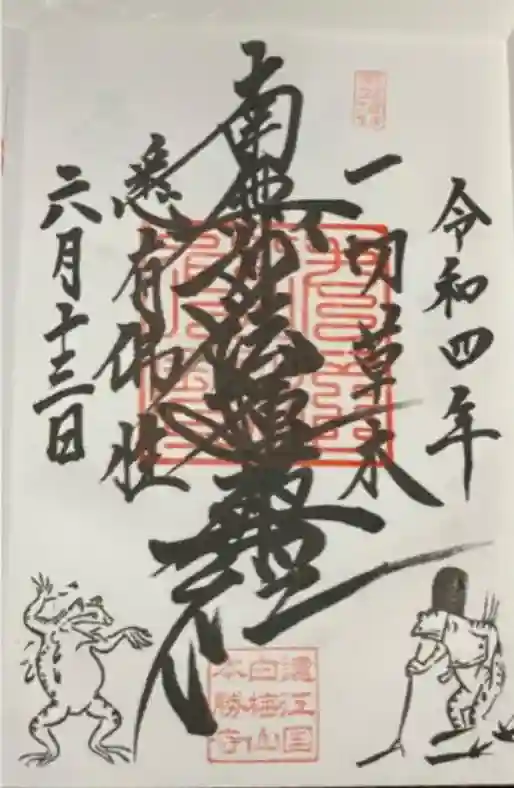 令和四年
一切草木
南無妙法蓮華経
悉有佛性
六月十三日
遠江国
白嵓山
本勝寺